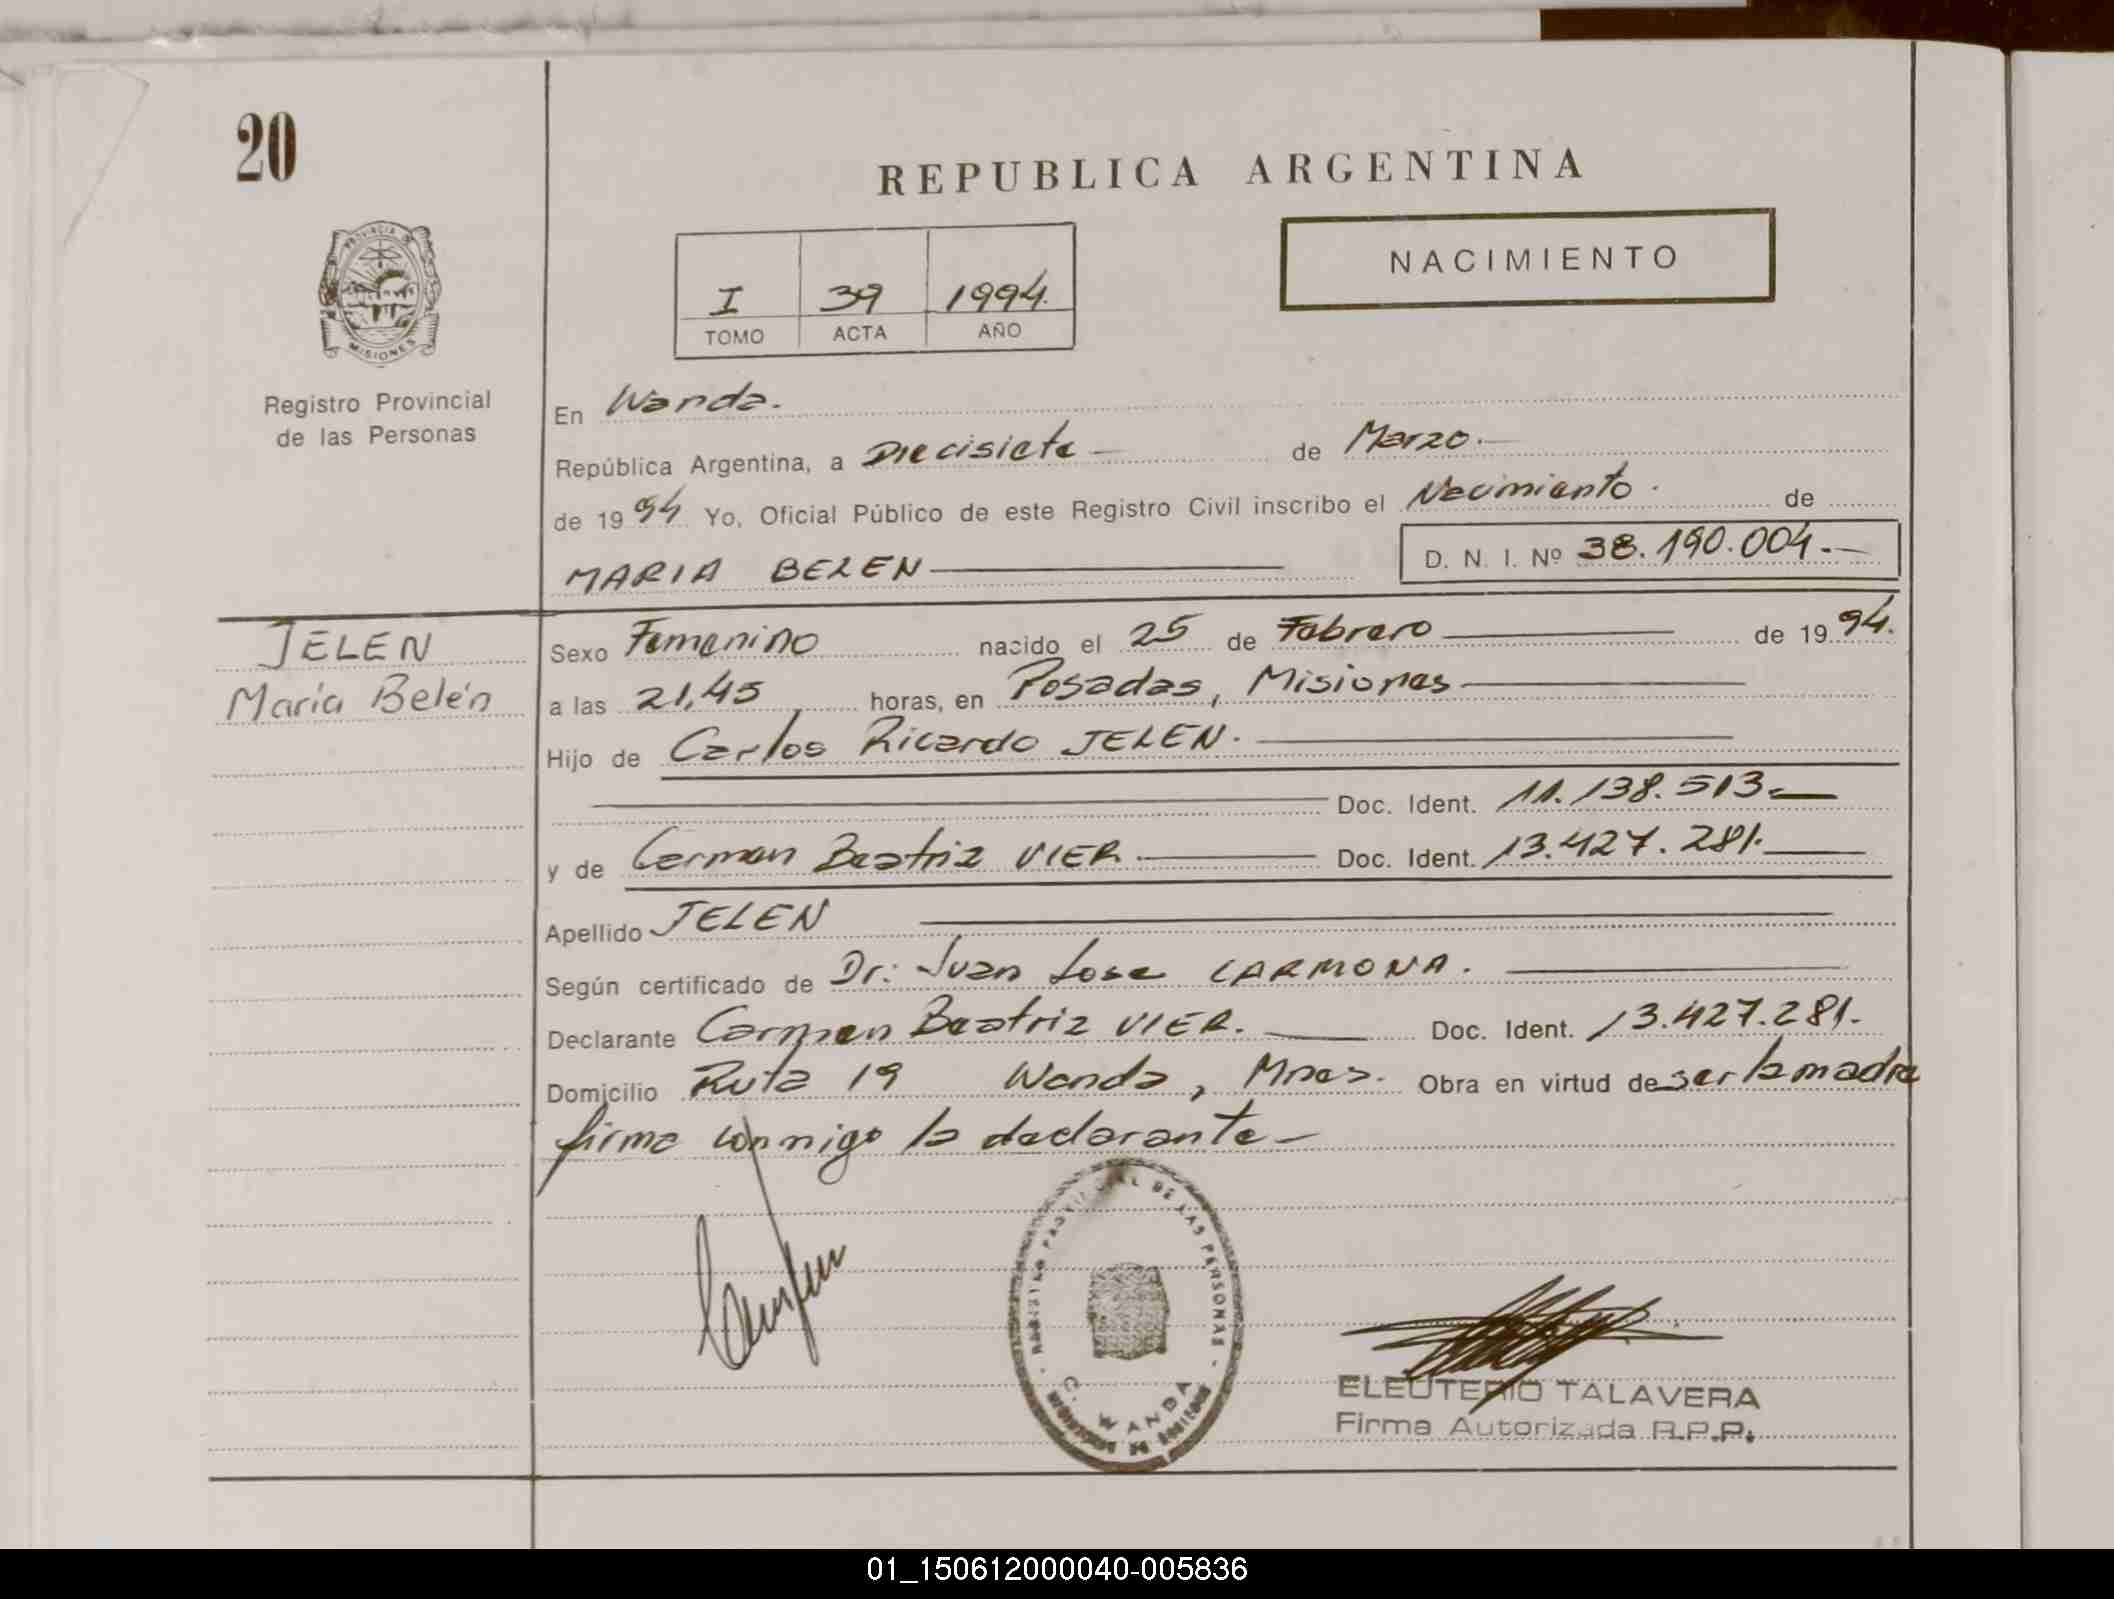 20
REPUBLICA ARGENTINA
NACIMIENTO
I 39 1994.
TOMO ACTA AÑO
PROVINCIA DE
MISIONES
Registro Provincial
de las Personas
En Wanda.
República Argentina, a Diecisiete de Marzo.
de 1994 Yo, Oficial Público de este Registro Civil inscribo el Nacimiento. de
MARIA BELEN D. N. I. Nº 38.190.004.-
JELEN
María Belén
Sexo Femenino nacido el 25 de Febrero de 1994.
a las 21,45 horas, en Posadas, Misiones
Hijo de Carlos Ricardo JELEN.
Doc. Ident. 11.138.513.
y de Carmen Beatriz VIER Doc. Ident. 13.427.281.
Apellido JELEN
Según certificado de Dr: Juan Jose CARMONA.
Declarante Carmen Beatriz VIER. Doc. Ident. 13.427.281.
Domicilio Ruta 19 Wanda, Mnes. Obra en virtud de ser la madre
firma conmigo la declarante-
DE LAS PERSONAS
WANDA
ELEUTERIO TALAVERA
Firma Autorizada R.P.P.
01_150612000040-005836